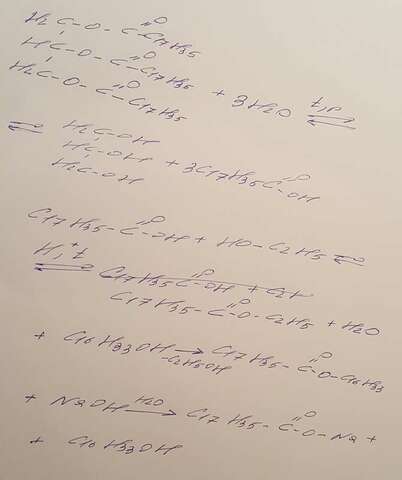 H2C-O-C=O-C17H35
HC-O-C=O-C17H35
H2C-O-C=O-C17H35 + 3H2O ⇌ t,p
⇌ H2C-OH
HC-OH + 3C17H35C=O-OH
H2C-OH
C17H35-C=O-OH + HO-C2H5 ⇌
⇌ H+, t C17H35C=O-OH + C2H
C17H35-C=O-O-C2H5 + H2O
+ C16H33OH → -C2H5OH C17H35-C=O-O-C16H33
+ NaOH → H2O C17H35-C=O-O-Na +
+ C16H33OH